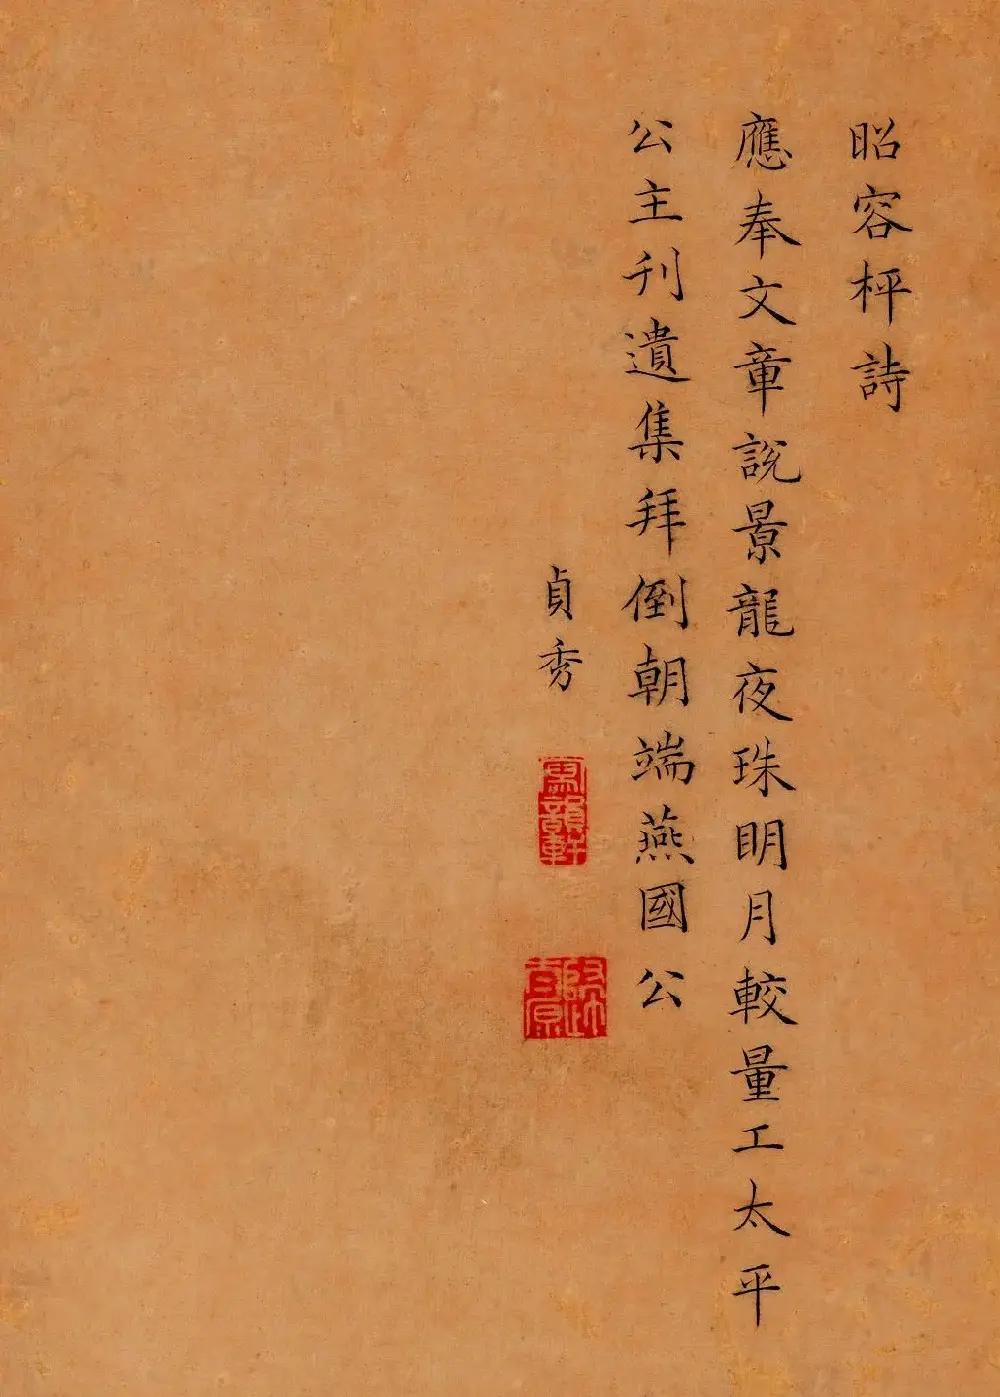 昭容枰詩
應奉文章說景龍夜珠明月較量工太平
公主刊遺集拜倒朝端燕國公
貞秀
寫韻軒